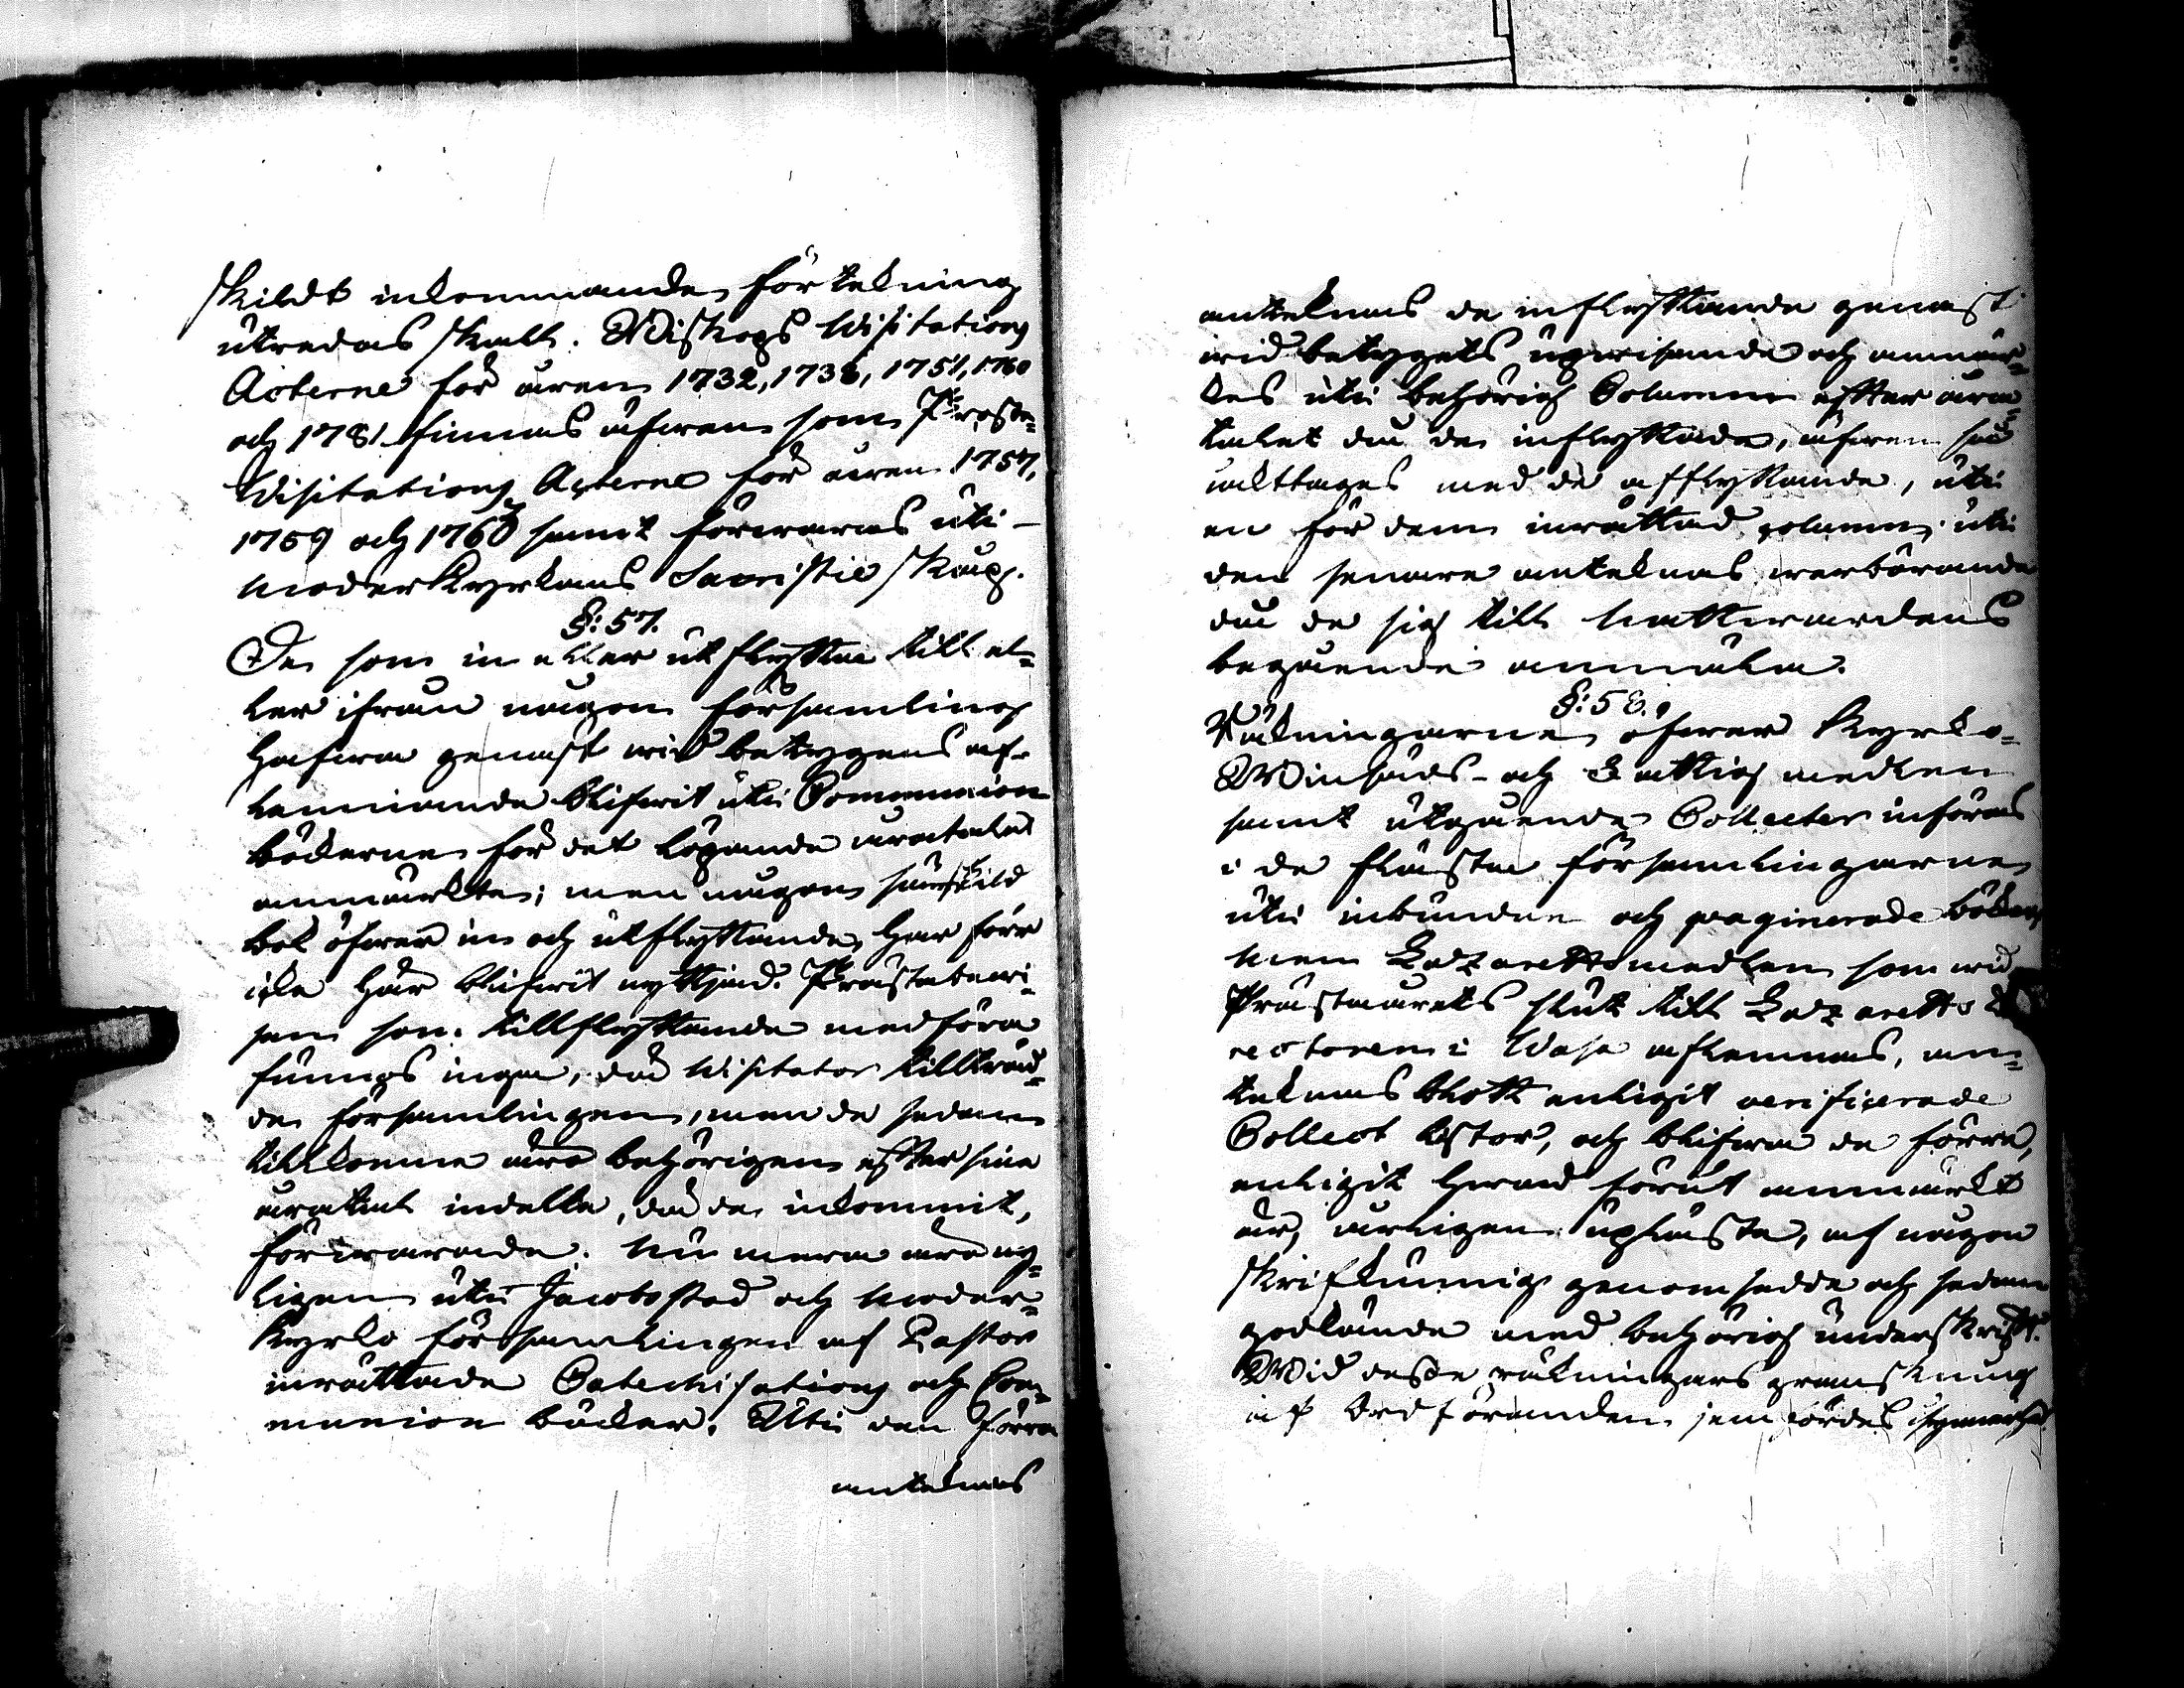 skildt inkommande förtekning
utredas skall. Biskops Visitations
Acterne för åren 1732, 1738, 1751, 1760
och 1781 finnas äfwen som Proste-
Visitations Acterne för åren 1757,
1759 och 1767 samt förwaras uti
moderkyrkans Sacristie skåp.
§: 57.
De som in eller utflytta till el-
ler ifrån någon församling
hafwa genast wid betygens af-
lemnande blifwit uti Communion
böckerne för det löpande åratalet
anmärkte; men någon särskild
bok öfwer in och utflyttande har förr
icke här blifwit nyttjad. Prästebewi-
sen som tillflyttande medföra
funnos inga, då Visitator tillträd-
de församlingen, men de sedan
tillkomne äro behörigen efter sina
åratal indelte, då de inkommit,
förwarade. Nu mera äro ny-
ligen uti Jacobstad och moder-
kyrko församlingen af Pastor
inrättade Catechisations och Com-
munion böcker. Uti den förra
anteknas
anteknas de inflyttande genast
wid betygets upwisande och anmär-
kes uti behörig Columne efter åra-
talet då de inflyttade, äfwen så
iakttages med de afflyttande, uti
en för dem inrättad columne; uti
den senare anteknas wederbörande
då de sig till nattwardens
begående anmäla.
§: 58.
Räkningarne öfwer Kyrko-
Winsäds- och Fattig medlen
samt utgående Collecter införas
i de flästa församlingarne
uti inbundne och paginerade böcker
men Lazarettsmedlen som wid
Prästaårets slut till Lazaretts Di
rectoren i Wasa aflemnas, an-
teknas blott enligit verificerade
Collect listor, och blifwa de förra,
enligit hwad förut anmärkt
är, årligen upläste, af någon
skrifkunnig genomsedde och sedan
godkände med behörig underskrift.
Wid desse räkningars granskning
af Ordföranden jemfördes